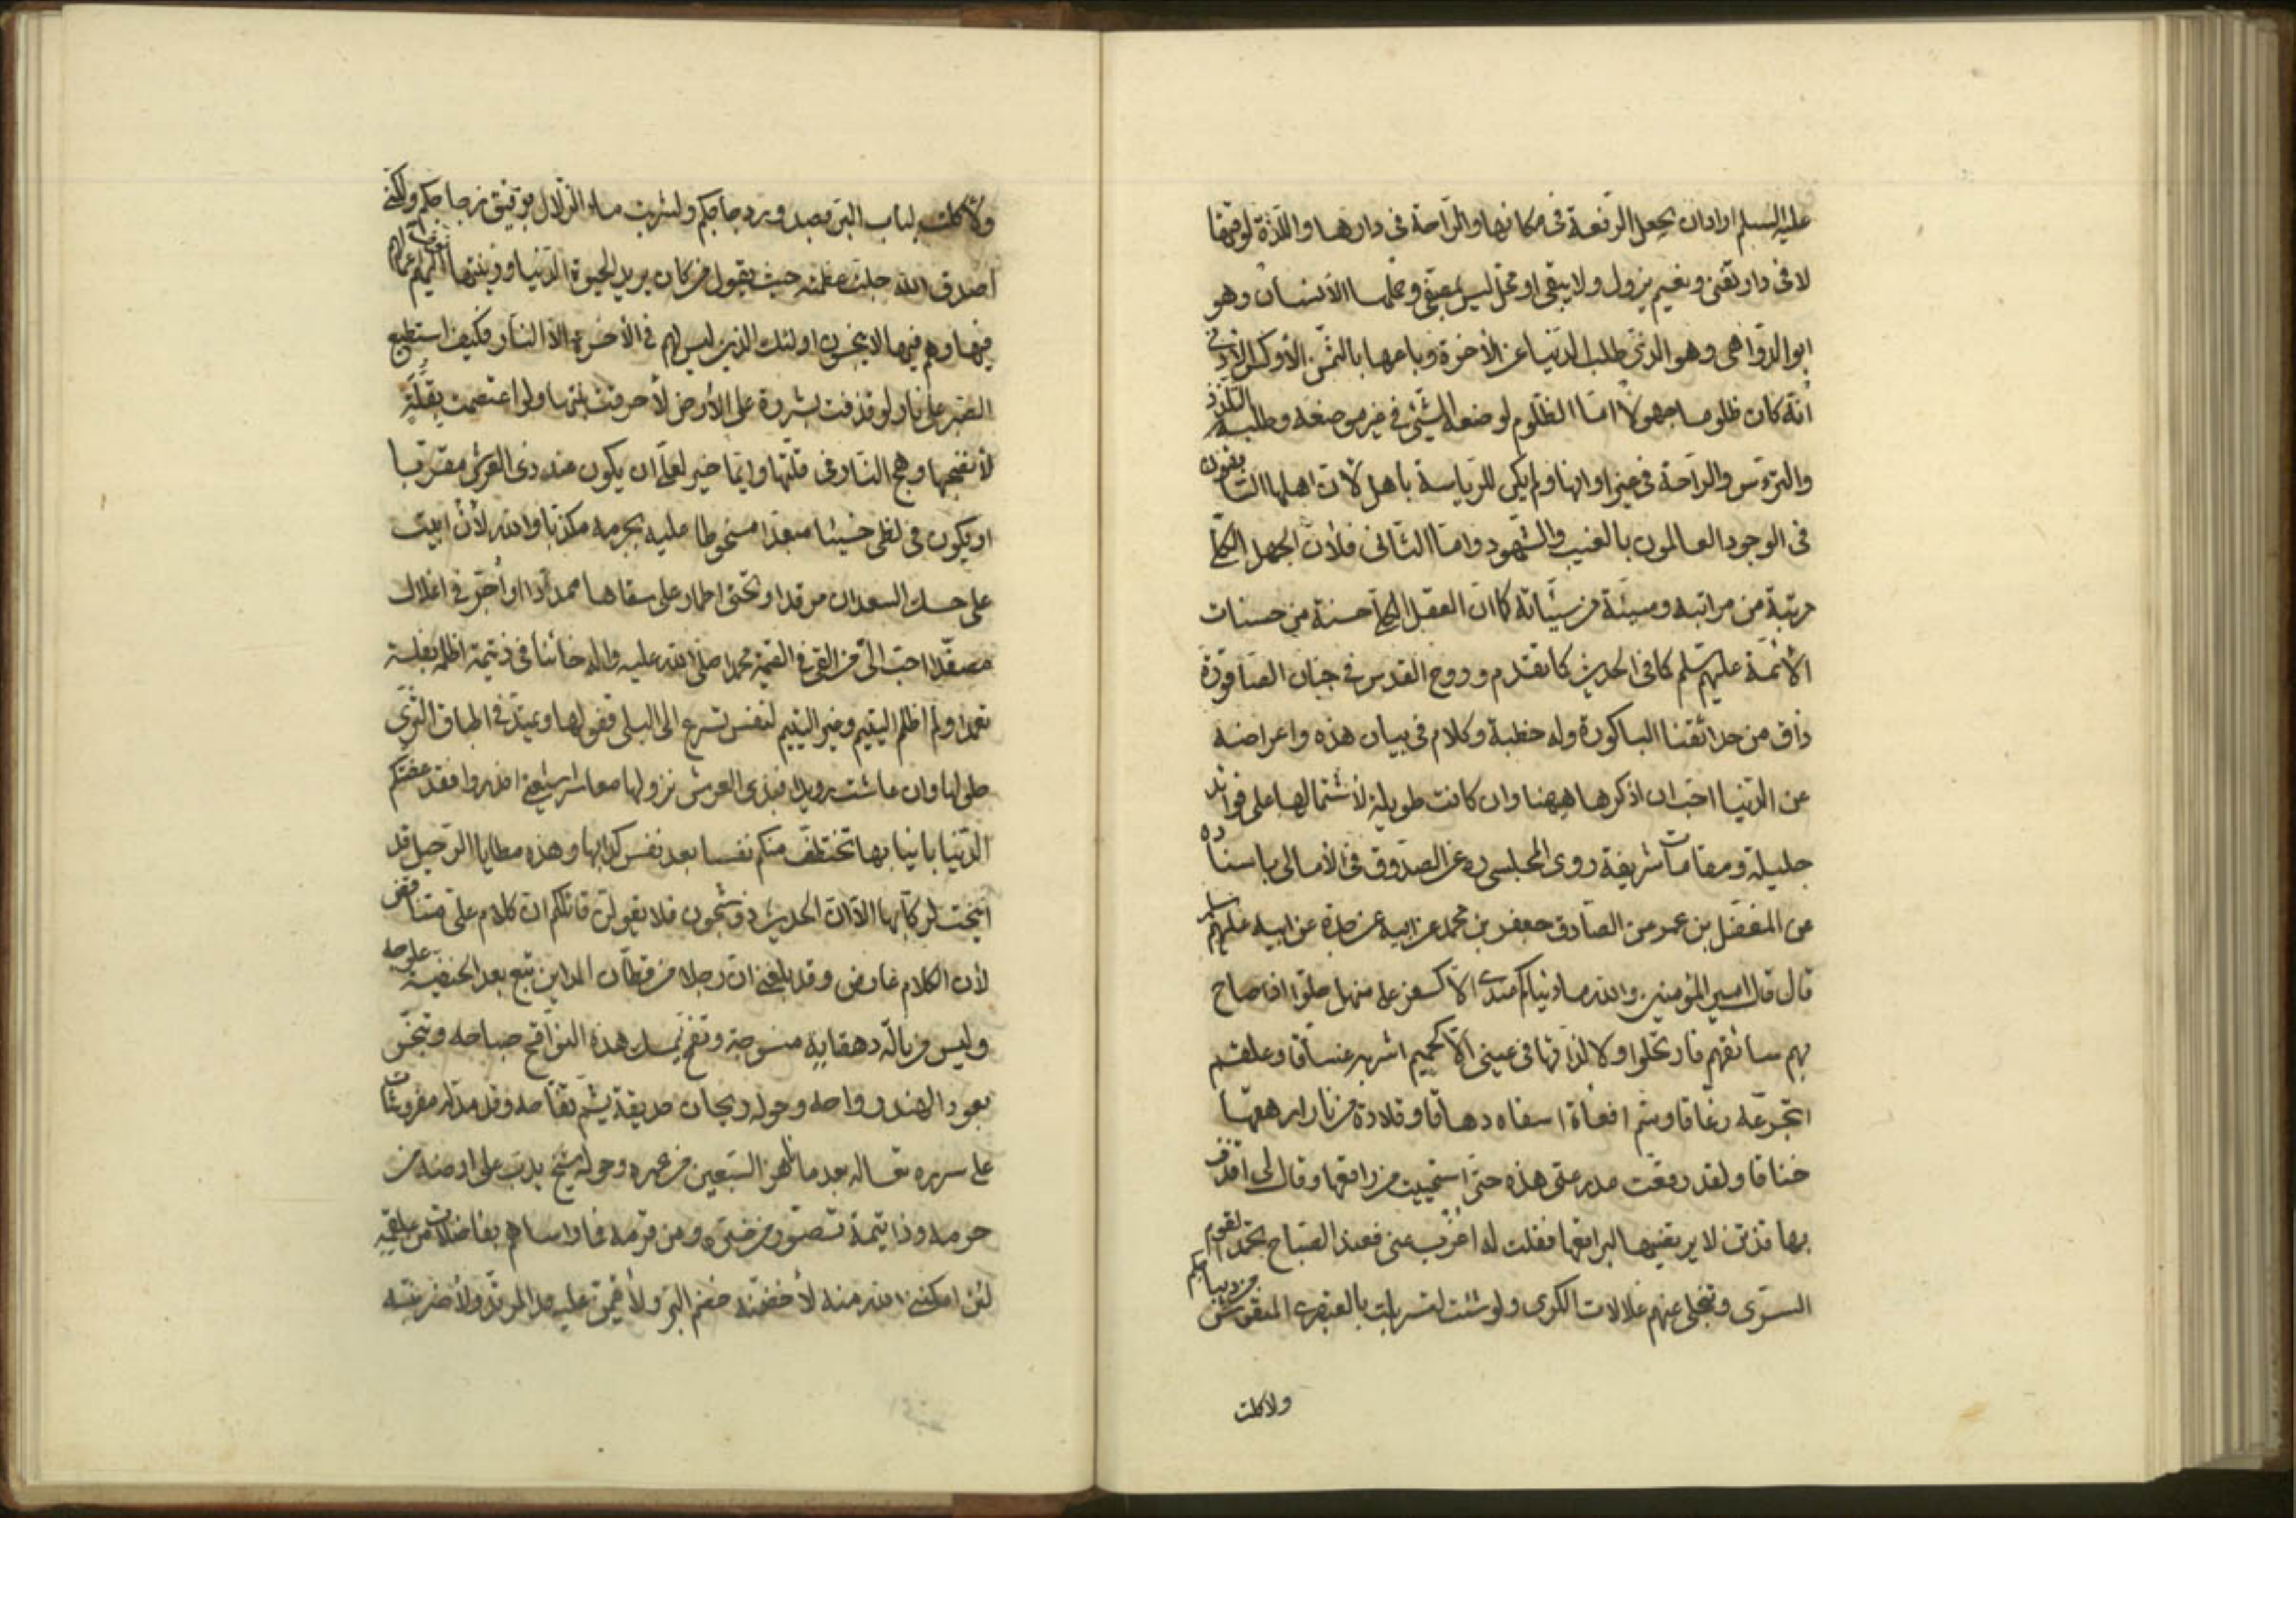 عليه السلم اراد ان يجعل الرفعة فى مكانها والراحة فى دارها واللذة لوقتها
لا فى دار تفنى ونعيم يزول ولا يبقى او محل ليس بمبقى وعليها الانسان وهو
ابو الدواهى وهو الذى طلب الدنيا عن الاخرة وباعها بالثمن الأوكس الأدنى
انه كان ظلوما جهولا اما الظلوم لوضعه الشئ فى غير موضعه وطلبه التلذذ
والترؤس والراحة فى غير اوانها ولم يكن للرياسة باهل لان اهلها السابقون
فى الوجود العالمون بالغيب والشهود واما الثانى فلان الجهل الكلى
مرتبة من مراتبه وسيئة من سيئاته كما ان العقل الكلى حسنة من حسنات
الأئمة عليهم سلم كما فى الحديث كما تقدم وروح القدس فى جنان الصاقورة
ذاق من حدائقنا الباكورة وله خطبة وكلام فى بيان هذه واعراضه
عن الدنيا احب ان اذكرها هيهنا وان كانت طويلة لأشتمالها على فوائد
جليلة ومقامات شريفة روى المجلسى ره عن الصدوق فى الأمالى باسناده
عن المفضل بن عمر عن الصادق جعفر بن محمد عن ابيه عن جده عن ابيه عليهم سلم
قال قال امير المؤمنين والله ما دنياكم عندى الا كسفر على منهل حلوا اذ صاح
بهم سائقهم فارتحلوا ولا لذاتها فى عينى الا كحميم اشربه غساقا وعلقم
اتجرعه زعاقا وسم افعاة اسقاه دهاقا وقلادة من نار ارهقها
خناقا ولقد رقعت مدرعتى هذه حتى استحييت من راقعها وقال لى اقذف
بها قذف الاتن لا يرتضيها لبراقعها فقلت له اغرب عنى فعند الصباح يحمد القوم
السرى وتنجلى عنهم علالات الكرى ولو شئت لتسربلت بالعبقرى المنقوش من ديباجكم
ولاكلت
ولأكلت لباب البر بصدور دجاجكم ولشربت ماء الزلال برقيق زجاجكم ولكنى
اصدق الله جلت عظمته حيث يقول من كان يريد الحيوة الدنيا وزينتها نوف اليهم اعمالهم
فيها وهم فيها لا يبخسون اولئك الذين ليس لهم فى الأخرة الا النار فكيف استطيع
الصبر على نار لو قذفت بشررة على الأرض لأحرقت نبتها ولو اعتصمت بقلة
لأنضجها وهج النار فى قلتها وايما خير لعلى ان يكون عند ذى العرش مقربا
او يكون فى لظى خسيئا مبعدا مسخوطا عليه بجرمه مكذبا والله لأن ابيت
على حسك السعدان مرقدا وتحتى اطمار على سفاها ممددا او أجر فى اغلال
مصفدا احب الى من القى فى القيمة محمدا صلى الله عليه واله خائنا فى ذى يتمة اظلمه بفلسة
تعمدا ولم اظلم اليتيم وغير اليتيم لنفس تسرع الى البلى قفولها ويمتد فى اطباق الثرى
حلولها وان عاشت رويدا فبذى العرش نزولها معاشر شيعتى احذروا فقد عضتكم
الدنيا بانيابها تختطف منكم نفسا بعد نفس كذئابها وهذه مطايا الرحيل قد
انيخت لركابها الا ان الحديث ذو شجون فلا يقولن قائلكم ان كلام على متناقض
لأن الكلام عارض وقد بلغنى ان رجلا من قطان المداين تبع بعد الحنفية علوجه
ولبس من نالة دهقانه منسوجه وتضمخ بمسك هذه النوافج صباحه وتبخر
بعود الهند رواحه وحوله ريحان حديقة يشم تفاحه وقد مد له مفروشات
على سرره تعسا له بعد ما ناهز السبعين من عمره وحوله شيخ يدب على ارضه من
هرمه وذا يتمة تضور من ضره ومن قرمه فما واساهم بفاضلات من علقمه
لئن امكننى الله منه لأخضمنه خضم البر ولأقيمن عليه حد المرتد ولأضربنه